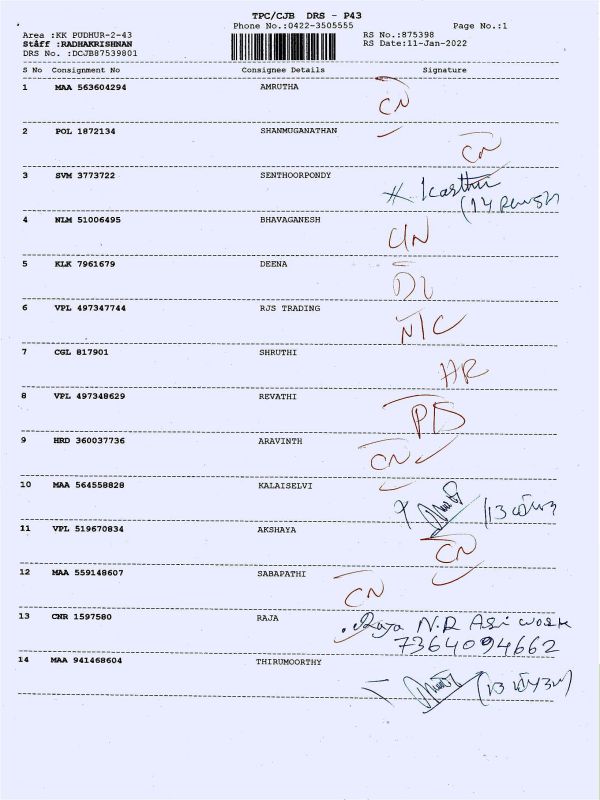 TPC/CJB DRS - P43
Phone No.:0422-3505555 Page No.:1
Area :KK PUDHUR-2-43 RS No.:875398
Staff :RADHAKRISHNAN RS Date:11-Jan-2022
DRS No. :DCJB87539801
S No Consignment No Consignee Details Signature
1 MAA 563604294 AMRUTHA CN
2 POL 1872134 SHANMUGANATHAN CN
3 SVM 3773722 SENTHOORPONDY
4 NLM 51006495 BHAVAGANESH
5 KLK 7961679 DEENA
6 VPL 497347744 RJS TRADING
7 CGL 817901 SHRUTHI
8 VPL 497348629 REVATHI
9 HRD 360037736 ARAVINTH CN
10 MAA 564558828 KALAISELVI
11 VPL 519670834 AKSHAYA CN
12 MAA 559148607 SABAPATHI CN
13 CNR 1597580 RAJA Raja N.R
7364094662
14 MAA 941468604 THIRUMOORTHY